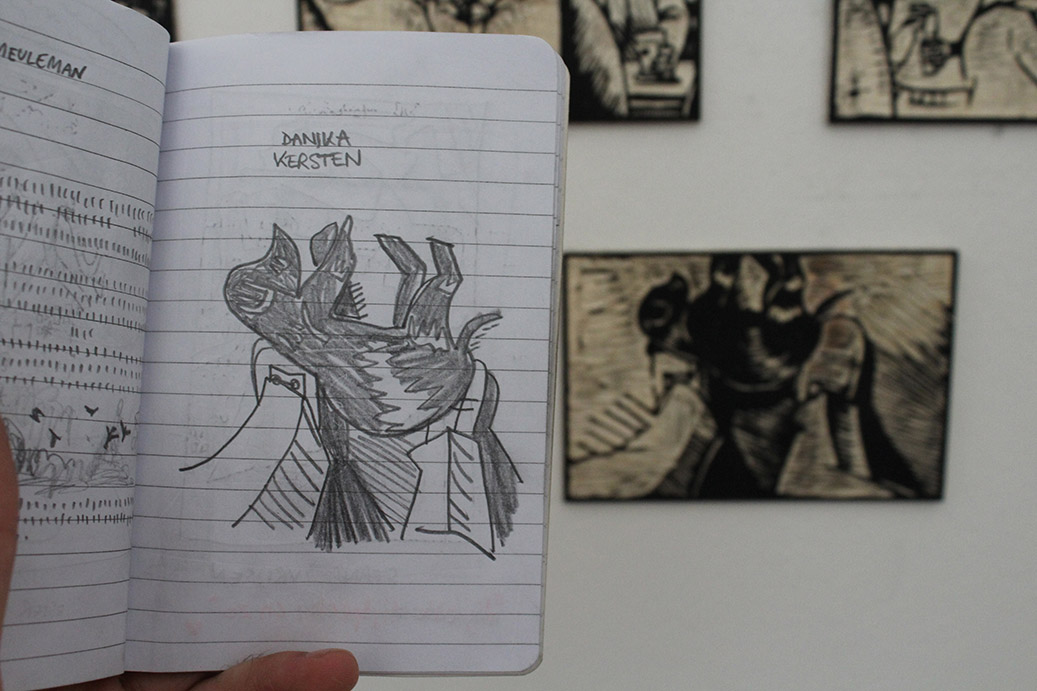 MEULEMAN
DANIKA
KERSTEN